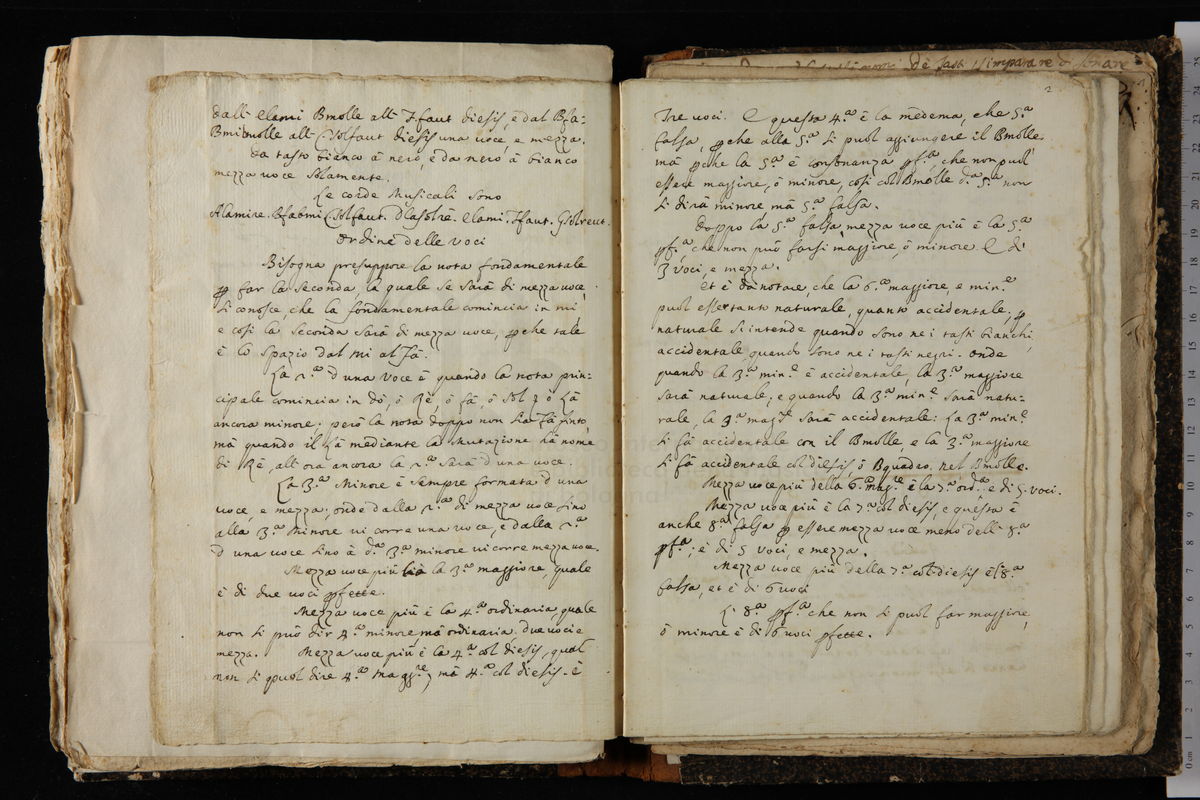 dall' elami Bmolle all' Ffaut diesis, è dal Bfa=
Bmi bmolle all' Csolfaut diesis una voce, e mezza.
Da tasto bianco à nerò, è da nero à bianco
mezza voce solamente.
Le corde Musicali sono
Alamire. Bfabmi. Csolfaut. Dlasolrè. elami. Ffaut. Gsolreut.
Ordine delle voci
Bisogna presuppore la nota fondamentale
ꝑ far la seconda, la quale se sarà di mezza voce,
si conosce che la fondamentale comincia in mi,
e così la seconda sarà di mezza voce, ꝑche tale
è lo spazio dal mi al fà.
La 2.ª d'una voce è quando la nota prin=
cipale comincia in dò, ò Rè, ò fà, ò sol, ò là
ancora minore: però la nota doppo non sia fà finto,
mà quando il là mediante la Mutazione hà nome
di Rè, all'ora ancora la 2.ª sarà d'una voce.
La 3.ª Minore è sempre formata d'una
voce, e mezza; onde dalla 2.ª di mezza voce sino
alla 3.ª Minore vi corre una voce, e dalla 2.ª
d'una voce sino à d.ª 3.ª minore vi corre mezza voce.
Mezza voce più la 3.ª maggiore, quale
è di due voci ꝑfette.
Mezza voce più è la 4.ª ordinaria quale
non si può dir 4.ª minore, mà ordinaria due voci e
mezza. Mezza voce più è la 4.ª col diesis, qual
non si puol dire 4.ª magg.re, mà 4.ª col diesis. è
De tasti s'imparare è sonare
2
Tre voci. E questa 4.ª è la medema, che 5.ª
falsa, ꝑche alla 5.ª si puol aggiungere il Bmolle.
mà ꝑche la 5.ª è consonanza ꝑf.ª, che non puol'
essere maggiore, ò minore, così col Bmolle d.ª 5.ª non
si dirà minore mà 5.ª falsa.
Doppo la 5.ª falsa, mezza voce più è la 5.ª
ꝑf.ª, che non può farsi maggiore, ò minore. E di
3 voci, e mezza.
Et è da notare, che la 6.ª maggiore, e min.e
puol esser tanto naturale, quanto accidentale, ꝑ
naturale s'intende quando sono ne i tasti bianchi,
accidentale quando sono ne i tasti negri. onde
quando la 3.ª min.e è accidentale, la 3.ª maggiore
sarà naturale, e quando la 3.ª min.e sarà natu=
rale, la 3.ª mag.re sarà accidentale: La 3.ª min.e
si fà accidentale con il Bmolle e la 3.ª maggiore
si fà accidentale col diesis ò Bquadro nel Bmolle.
Mezza voce più della 6.ª mag.re è la 7.ª ord.ª e di 5. voci.
Mezza voce più è la 7.ª col diesis, e questa è
anche 8.ª falsa ꝑ essere mezza voce meno dell' 8.ª
ꝑf.ª: è di 5 voci, e mezza.
Mezza voce più della 7.ª col diesis è l'8.ª
falsa, et è di 6 voci
L' 8.ª ꝑf.ª che non si puol far maggiore,
ò minore è di 6 voci ꝑfette.